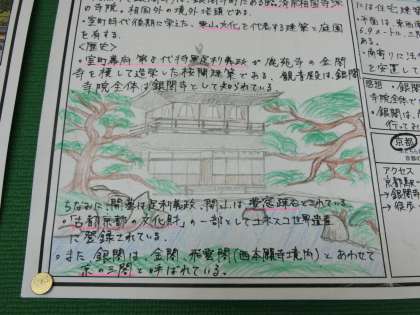 寺院。相国寺の境外塔頭である。
・室町時代後期に栄えた、東山文化を代表する建築と庭園
を有する。
<歴史>
・室町幕府 第8代将軍足利義政が 鹿苑寺の金閣
寺を模して造営した楼閣建築である。観音殿は、銀閣
寺院全体は銀閣寺として知られている。
ちなみに、開基は足利義政、開山は 夢窓疎石とされている。
・「古都京都の文化財」の一部としてユネスコ世界遺産
に登録されている。
・また 銀閣は 金閣、飛雲閣(西本願寺境内)とあわせて
京の三閣と呼ばれている。
は住宅建築
感想
・銀閣
寺院全体
・銀閣は、
行ってみ
京都
アクセス
京都駅
→銀閣寺
→徒歩